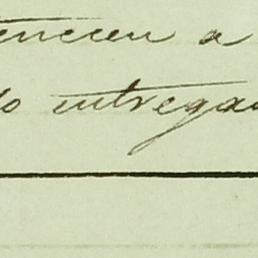 tenceu a
do entregar